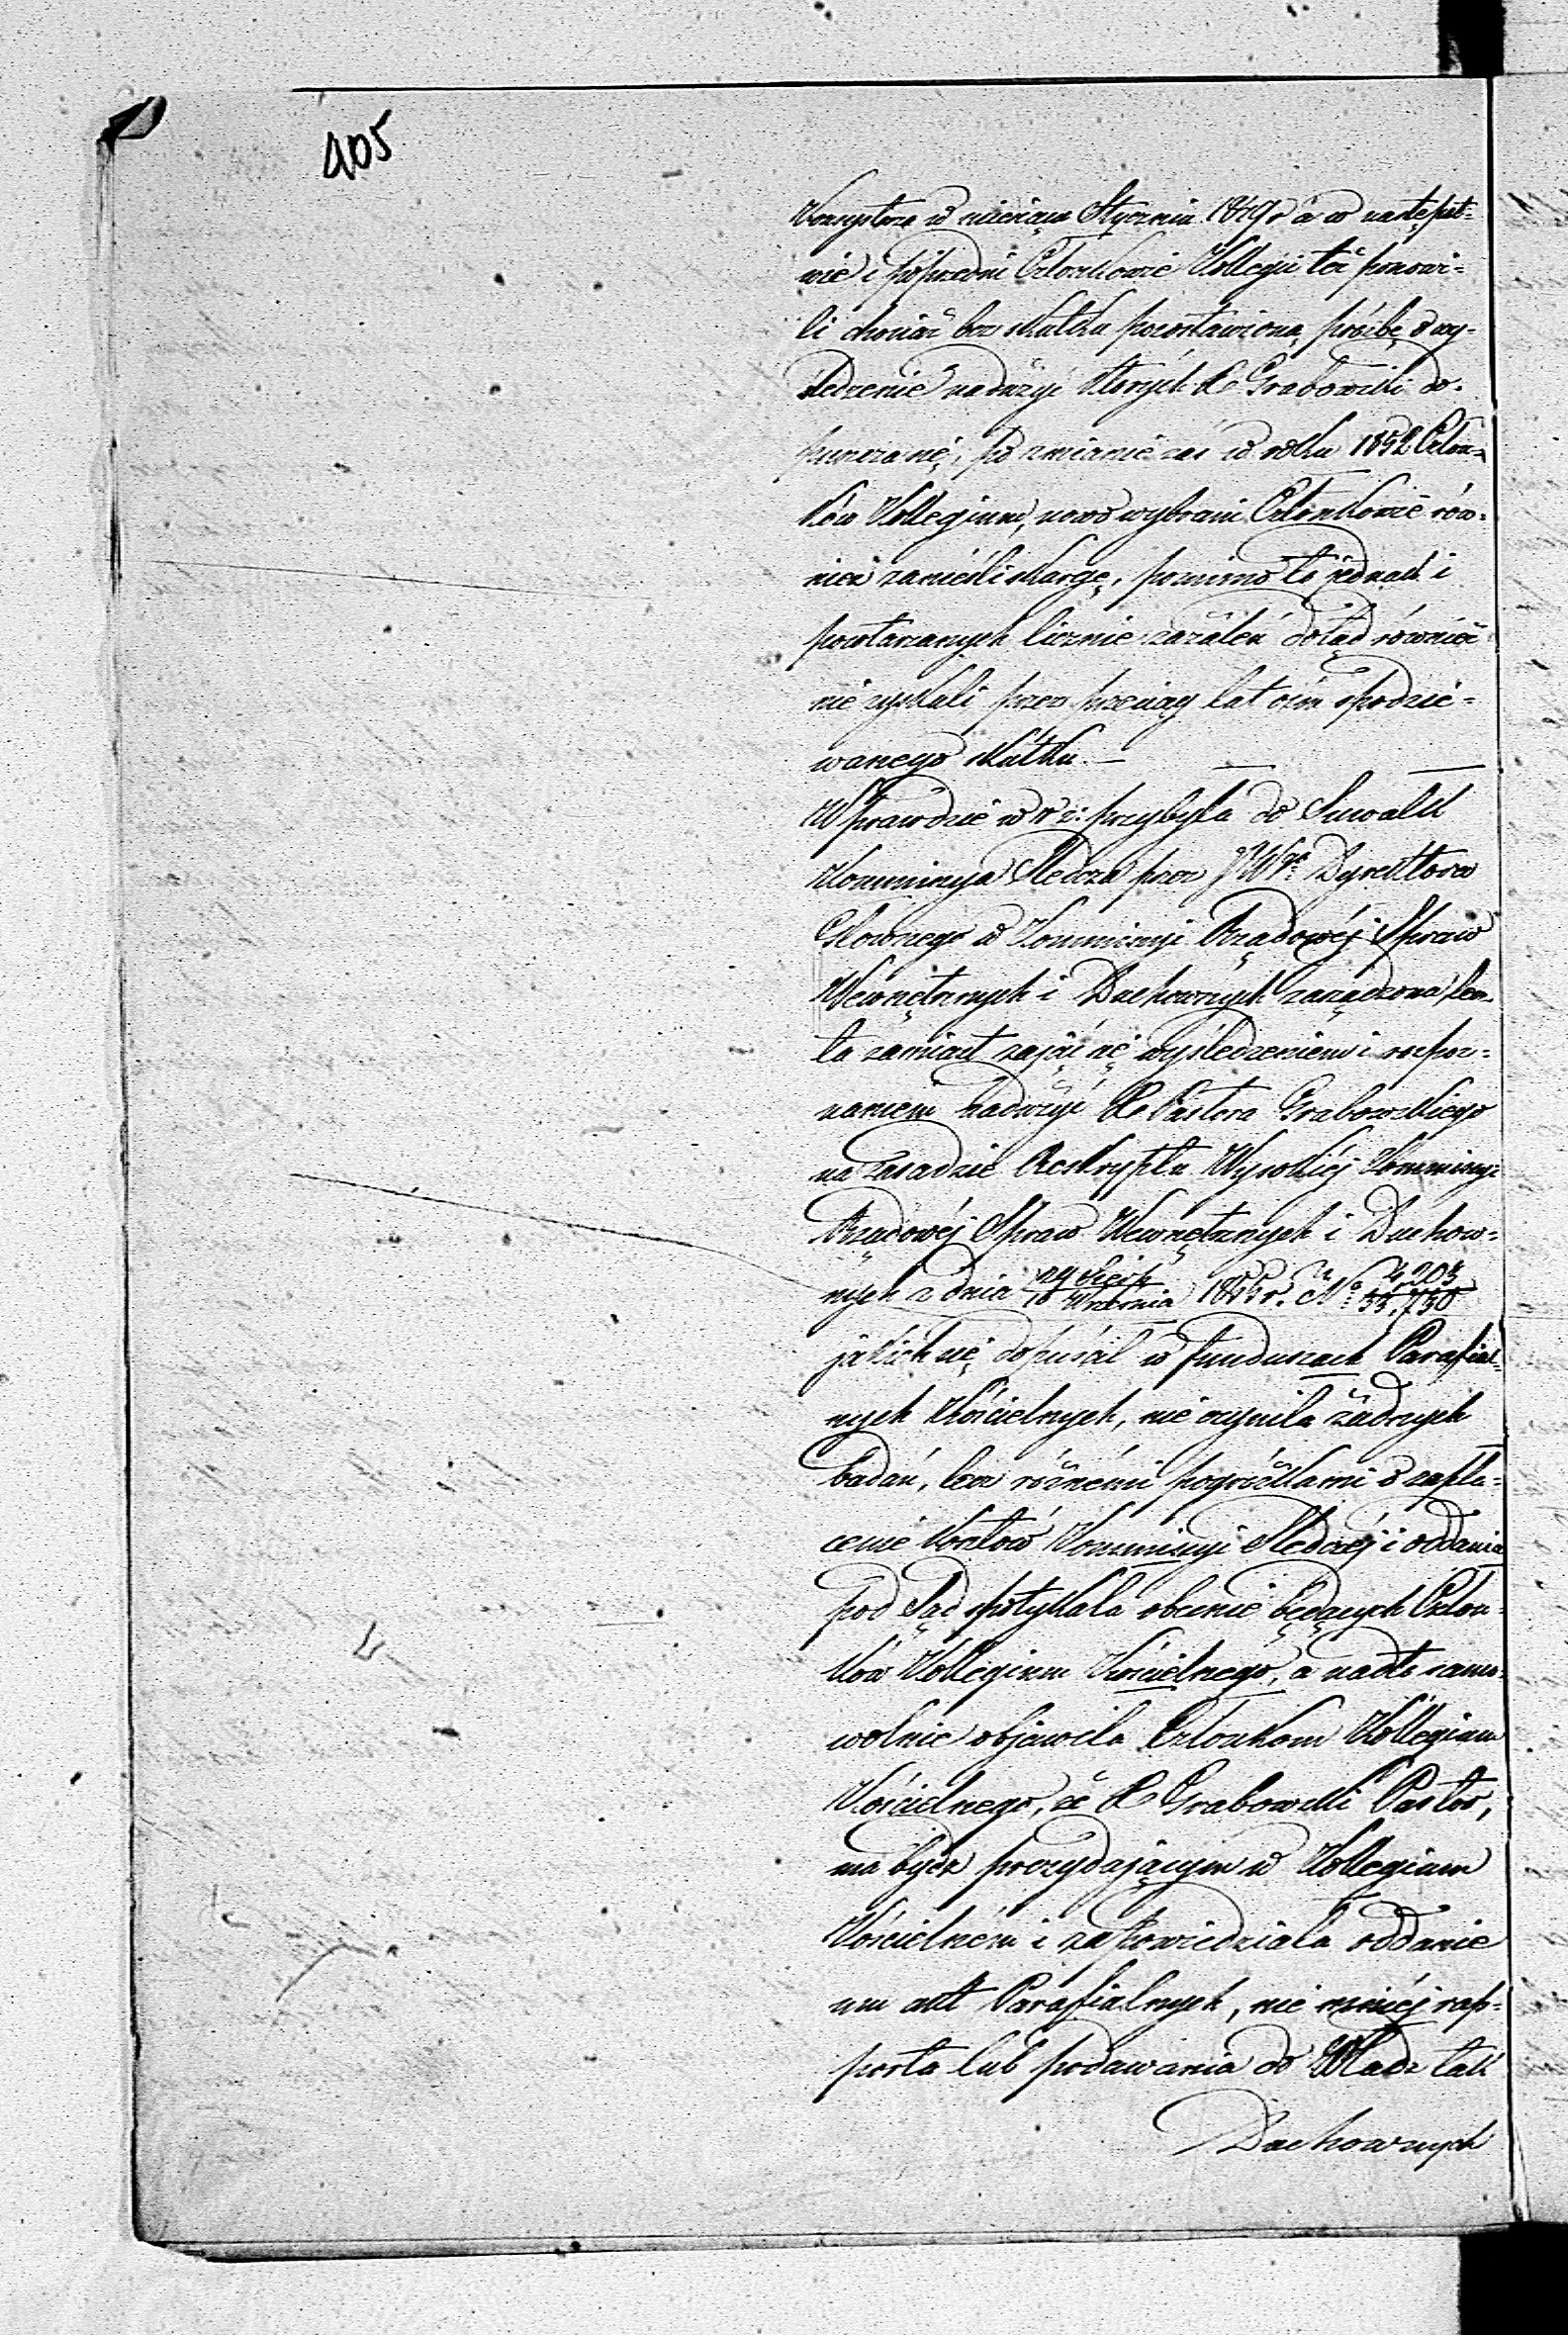 405
Konsystorz w miesiącu Styczniu 1849 r a w następst=
wie i poprzedni Członkowie Kollegii też ponowi=
li chociaż bez skutku pozostawioną prośbę o wy=
śledzenie nadużyć których X Grabowski do=
puszcza się, po zmianie zaś w roku 1852 Człon=
ków Kollegium, nowo wybrani Członkowie rów=
nież zanieśli skargę, pomimo to jednak i
powtarzanych licznie zażaleń dotąd również
nie zyskali przez przeciąg lat ośm spodzie=
wanego skutku. —
Wprawdzie w r z: przybyła do Suwałk
Kommissya Śledcza przez JW Dyrektora
Głównego w Kommissyi Rządowéj Spraw
Wewnętrznych i Duchownych zarządzona lecz
ta zamiast zająć się wyśledzeniem i rozpoz=
naniem nadużyć X Pastora Grabowskiego
na zasadzie Reskryptu Wysokiéj Kommissyi
Rządowéj Spraw Wewnętrznych i Duchow=
nych z dnia 29 Sierp / 10 Września 1855 r. N
jakich się dopuścił w funduszach Parafial=
nych Kościelnych, nie czyniła żadnych
badań, lecz różnemi pogróżkami o zapła=
cenie kosztów Kommissyi Śledczéj i oddania
pod Sąd spotykała obecnie będących Człon=
ków Kollegium Kościelnego, a nadto samo=
wolnie objawiła Członkom Kollegium
Kościelnego, że X Grabowski Pastor,
ma bydź prezydającym w Kollegium
Kościelném i zapowiedziała oddanie
mu akt Parafialnych, nie mniéj rap=
porta lub podawania do Władz tak
Duchownych